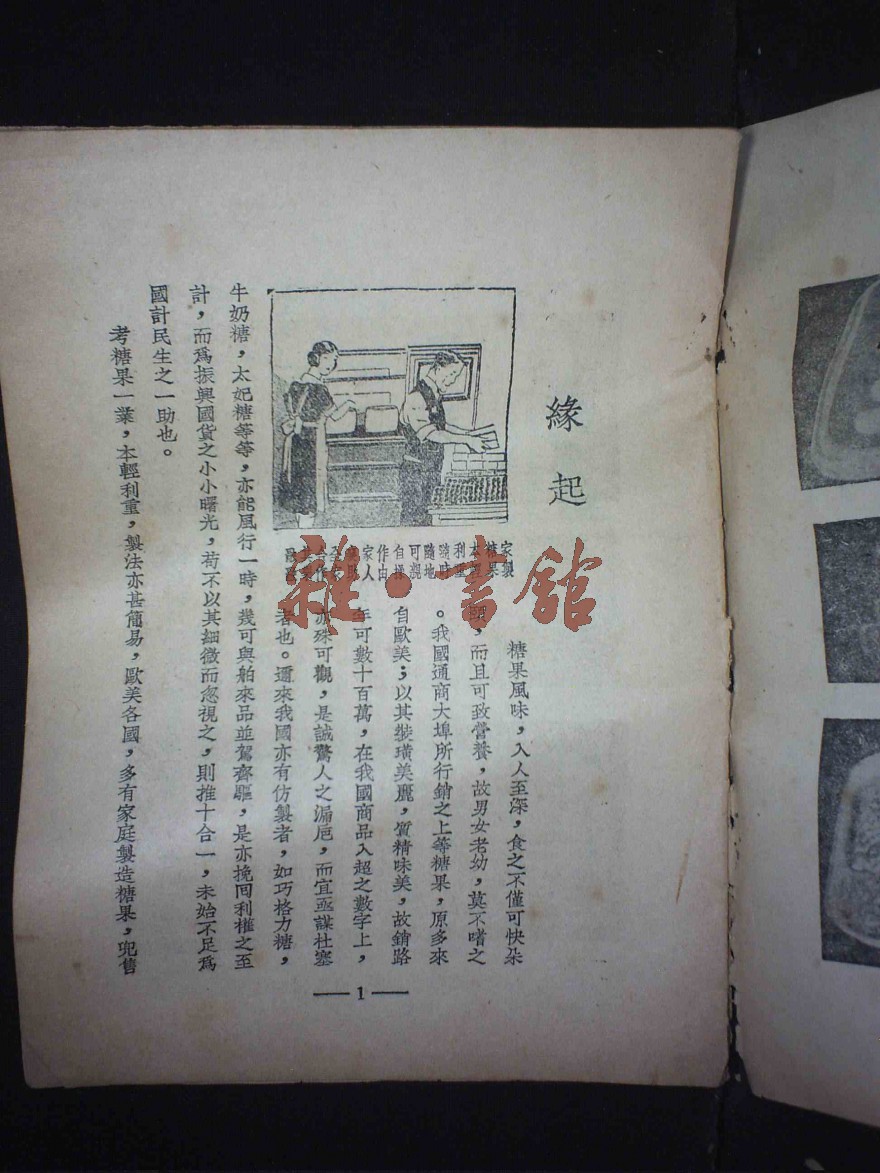 緣起
家製
糖果
利重
隨時
隨地
可親
自操
作由
家人
糖果風味，入人至深，食之不僅可快朵
頤，而且可致營養，故男女老幼，莫不嗜之
。我國通商大埠所行銷之上等糖果，原多來
自歐美；以其裝璜美麗，質精味美，故銷路
年可數十百萬，在我國商品入超之數字上，
亦殊可觀，是誠驚人之漏巵，而宜亟謀杜塞
者也。邇來我國亦有仿製者，如巧格力糖，
牛奶糖，太妃糖等等，亦能風行一時，幾可與舶來品並駕齊驅，是亦挽回利權之至
計，而爲振興國貨之小小曙光，苟不以其細微而忽視之，則推十合一，未始不足爲
國計民生之一助也。
考糖果一業，本輕利重，製法亦甚簡易，歐美各國，多有家庭製造糖果，兜售
1
雜·書館